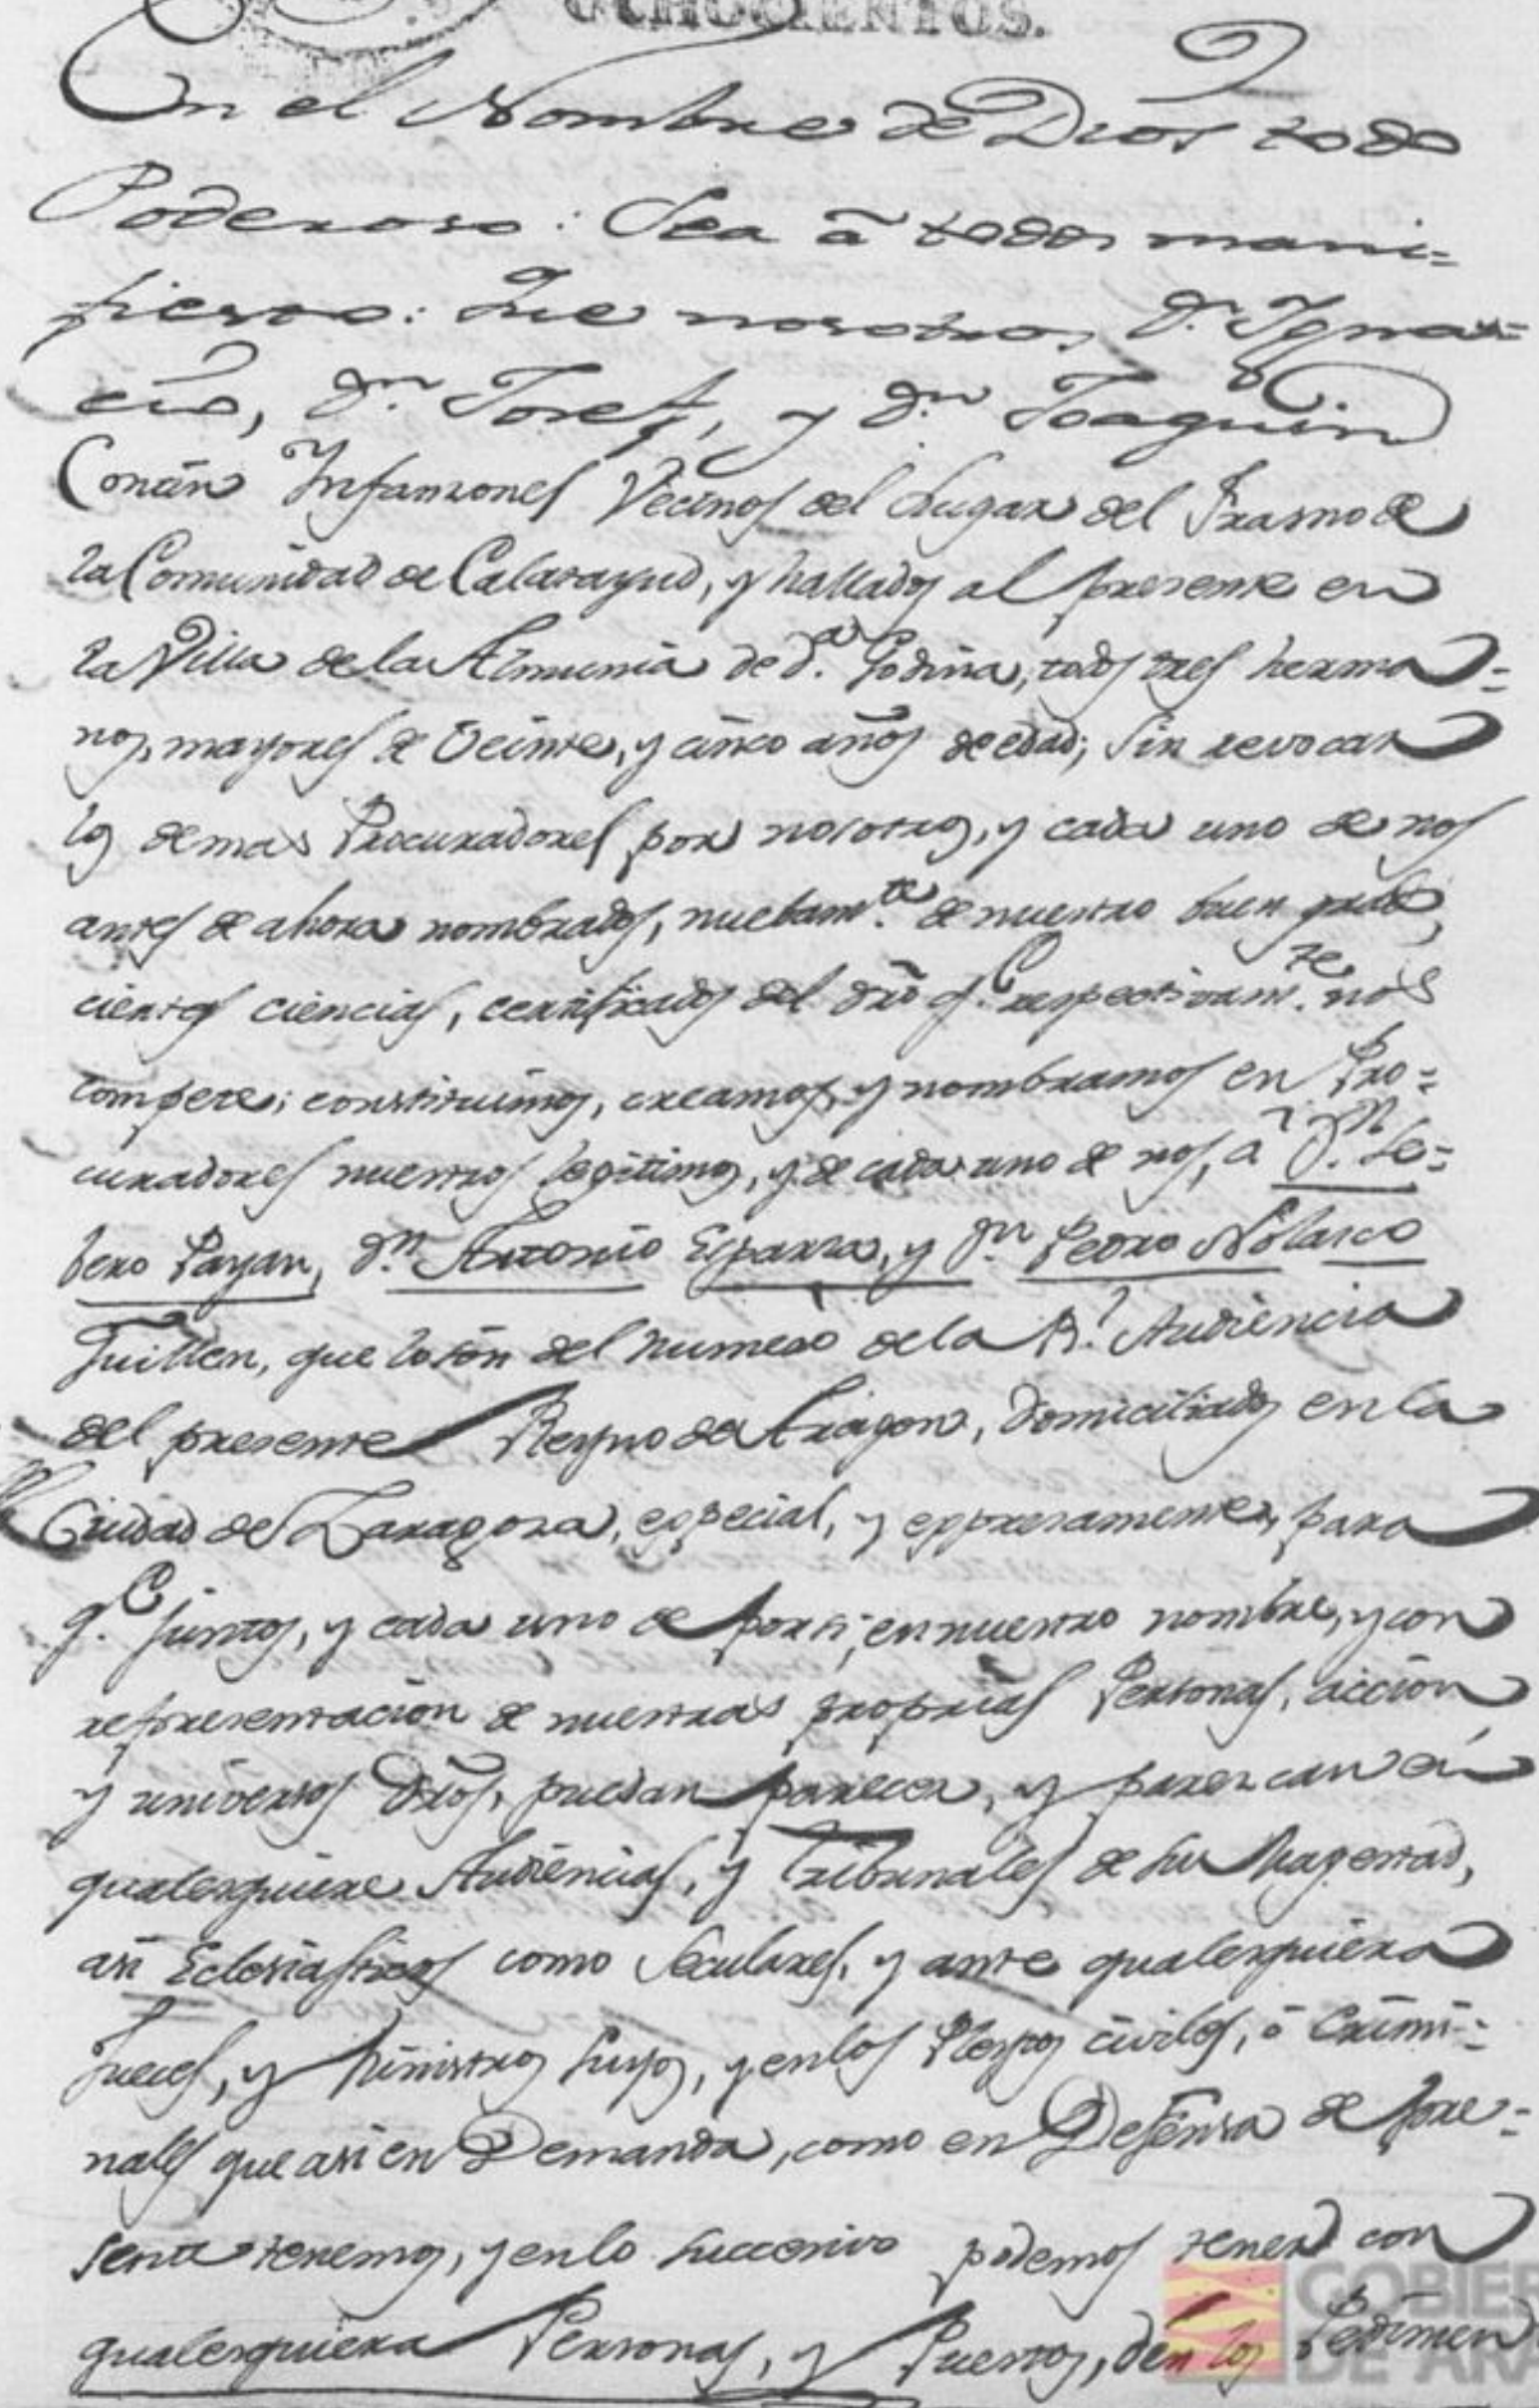 OCHOCIENTOS.
En el Nombre de Dios todo
Poderoso: Sea â todos mani=
fiesto: Que nosotros Dn. Igna=
cio, Dn. Josef, y Dn. Joaquin
Conín Infanzones Vecinos del Lugar del Frasno de
la Comunidad de Calatayud, y hallados al presente en
la Villa de la Almunia de Da. Godina, todos tres herma=
nos, mayores de Veinte, y cinco años de edad; Sin revocar
los demas Procuradores por nosotros, y cada uno de nos
antes de ahora nombrados, nuebamte. de nuestro buen grado,
ciertas ciencias, certificados del dro qe. respectivamte. nos
compete; constituimos, creamos, y nombramos en Pro=
curadores nuestros legitimos, y de cada uno de nos, â Dn. Se=
bero Payan, Dn. Antonio Esparza, y Dn. Pedro Nolasco
Guillen, que lo són del numero de la Rl. Audiencia
del presente Reyno de Aragon, domiciliados en la
Ciudad de Zaragoza, especial, y expresamente, para
qe. juntos, y cada uno de por si, en nuestro nombre, y con
representacion de nuestras proprias Personas, accion
y universos Dros, puedan parecer, y parezcan en
qualesquiere Audiencias, y Tribunales de Su Magestad,
asi Eclesiasticos como Seculares, y ante qualesquiera
Jueces, y Ministros suyos, y en los Pleytos civiles, ô Crimi=
nales que asi en Demanda, como en Defensa de pre=
sente tenemos, y en lo successivo podemos tener con
qualesquiera Personas, y Puestos, dén los Pedimen
GOBIER
DE ARA